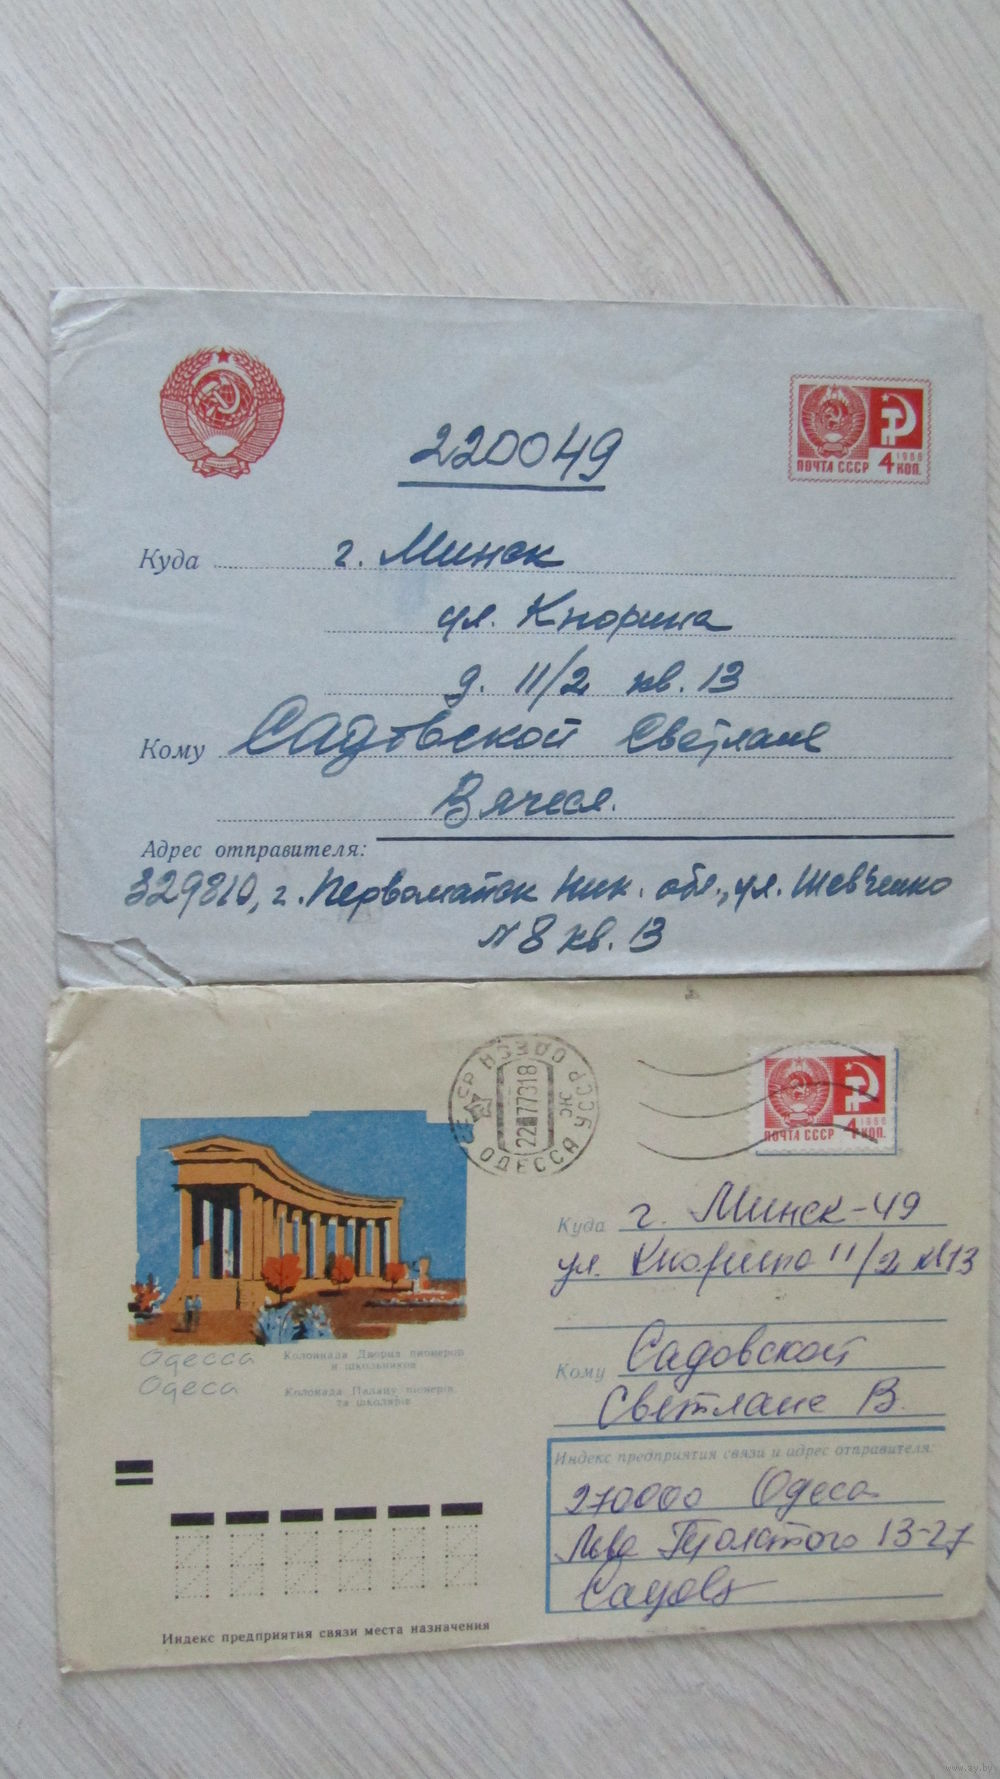 220049
ПОЧТА СССР 4 КОП. 1966
Куда г. Минск
ул. Кнорина
д. 11/2 кв. 13
Кому Садовской Светлане
Вячесл.
Адрес отправителя:
329810, г. Первомайск Ник. обл., ул. Шевченко
N 8 кв. 13
ОДЕССА УССР
ОДЕСА УРСР
ПОЧТА СССР 4 КОП. 1966
Куда г. Минск-49
ул. Кнорина 11/2 кв 13
Кому Садовской
Светлане В.
Одесса Колоннада Дворца пионеров
и школьников
Одеса Колонада Палацу піонерів
та школярів
Индекс предприятия связи и адрес отправителя:
270000 Одеса
Льва Толстого 13-27
Индекс предприятия связи места назначения
www.ay.by